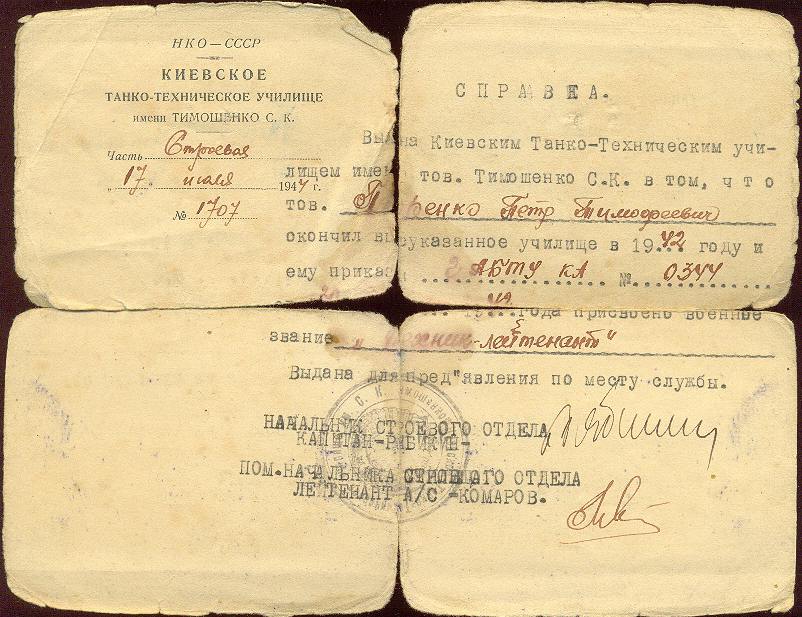 НКО — СССР
КИЕВСКОЕ
ТАНКО-ТЕХНИЧЕСКОЕ УЧИЛИЩЕ
имени ТИМОШЕНКО С. К.
Часть Строевая
„17." июля 1944 г.
№ 1707
СПРАВКА.
Выдана Киевским Танко-Техническим учи-
лищем имени тов. Тимошенко С.К. в том, что
тов. Петр Тимофеевич
окончил вышеуказанное училище в 1942 году и
ему приказом АБТУ КА № 0344
19 42 года присвоено военное
звание „техник-лейтенант"
Выдана для пред"явления по месту службы.
НАЧАЛЬНИК СТРОЕВОГО ОТДЕЛА
КАПИТАН-РЯБИКИН-
ПОМ.НАЧАЛЬНИКА СТРОЕВОГО ОТДЕЛА
ЛЕЙТЕНАНТ А/С -КОМАРОВ.